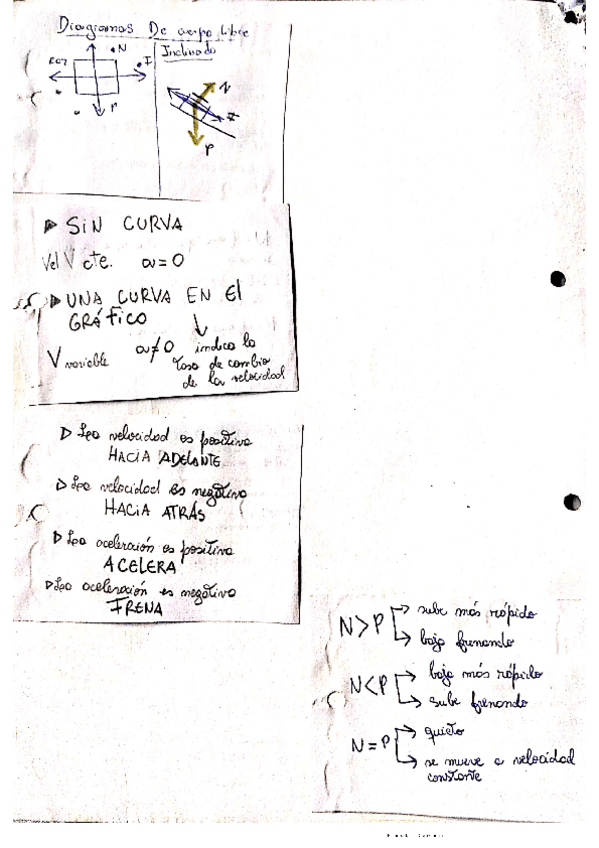 Diagramas De cuerpo libre
N
Roz
F
P
Inclinado
N
F
P
SiN CURVA
Vel V cte. a = 0
UNA CURVA EN El
GRÁFICO
V variable a ≠ 0 indica la
tasa de cambio
de la velocidad
La velocidad es positiva
HACIA ADELANTE
La velocidad es negativa
HACIA ATRÁS
La aceleración es positiva
ACELERA
La aceleración es negativa
FRENA
N>P sube más rápido
baja frenando
N<P baja más rápido
sube frenando
N=P quieto
se mueve a velocidad
constante